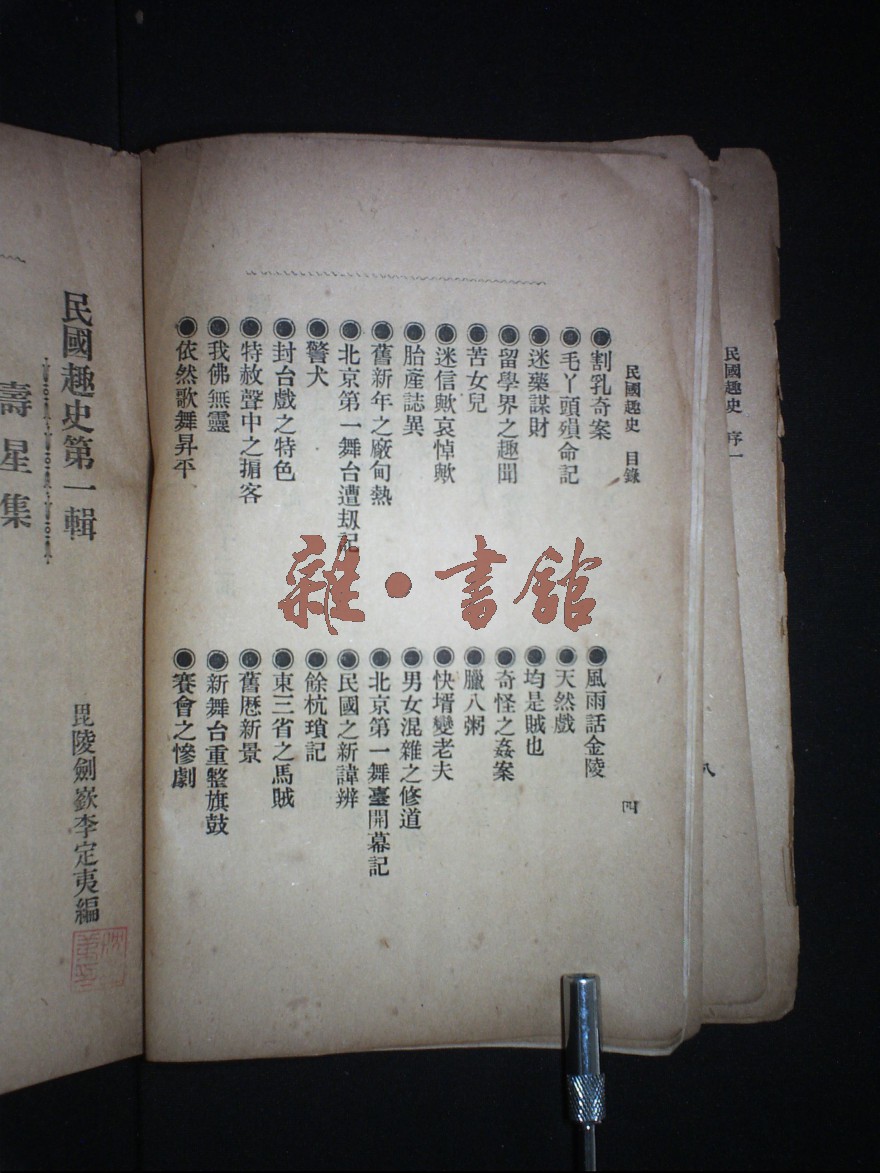 民國趣史 序一
八
民國趣史 目錄
四
◉割乳奇案
◉毛丫頭殞命記
◉迷藥謀財
◉留學界之趣聞
◉苦女兒
◉迷信歟哀悼歟
◉胎產誌異
◉舊新年之廠甸熱
◉北京第一舞台遭刼記
◉警犬
◉封台戲之特色
◉特赦聲中之掮客
◉我佛無靈
◉依然歌舞昇平
◉風雨話金陵
◉天然戲
◉均是賊也
◉奇怪之姦案
◉臘八粥
◉快壻變老夫
◉男女混雜之修道
◉北京第一舞臺開幕記
◉民國之新諱辨
◉餘杭瑣記
◉東三省之馬賊
◉舊歷新景
◉新舞台重整旗鼓
◉賽會之慘劇
民國趣史第一輯
毘陵劍嶔李定夷編
壽星集
雜·書館